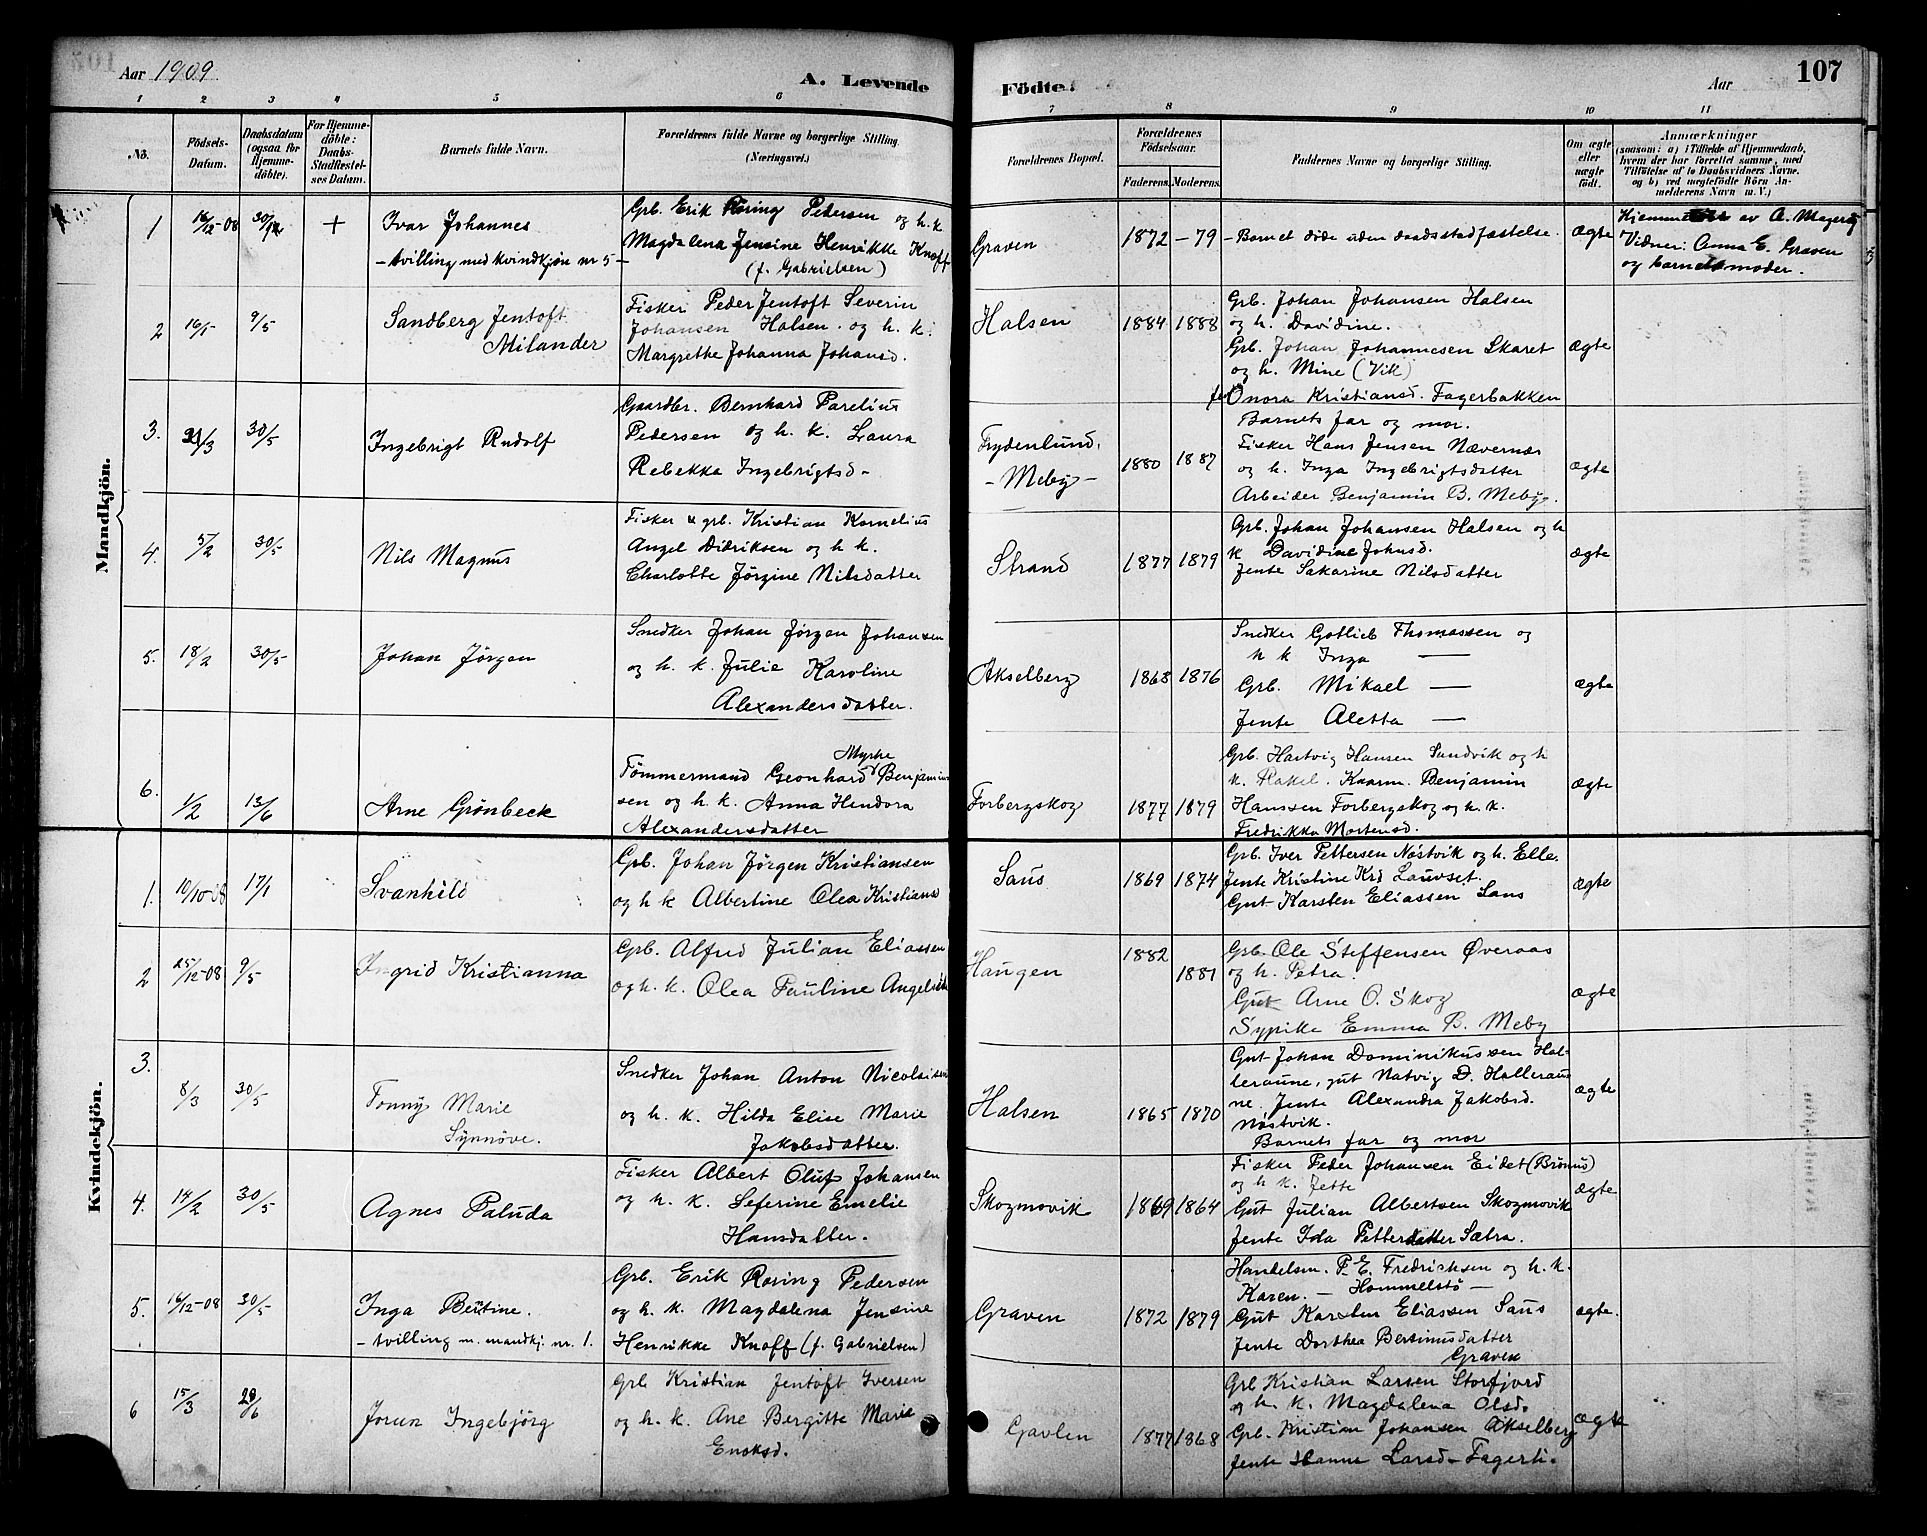 Aar 1909.
A. Levende Födte.
Aar
107
1 2 3 4 5 6 7 8 9 10 11
No.
Födsels-Datum.
Daabsdatum (ogsaa for Hjemme-döbte).
For Hjemme-döbte: Daabs-Stadfæstel-ses Datum.
Barnets fulde Navn.
Forældrenes fulde Navne og borgerlige Stilling (Næringsvei.)
Forældrenes Bopæl.
Forældrenes Födselsaar.
Faderens. Moderens.
Faddernes Navne og borgerlige Stilling.
Om ægte eller uægte født.
Anmærkninger
(saasom: a) i Tilfælde af Hjemmedaab, hvem der har forrettet samme, med Tilføielse af to Daabsvidners Navne, og b) ved uægtefødte Börn An-melderens Navn m. V.)
Mandkjön.
1 16/12-08 30/12 + Ivar Johannes
- tvilling med kvindkjön nr 5 -
Grb. Erik Rosing Pedersen og h. k
Magdalena Jensine Henrikke Knoff
(f. Gabrielsen)
Graven 1872 - 79 - Barnet døde uden daabsstadfæstelse. ægte
av A. Magerøy
Vidner: Anna E. Graven
og barnets moder.
2 16/1 9/5 Sandberg Jentoft
Milander
Fisker Peder Jentoft Severin
Johansen Halsen. og h. k.
Margrethe Johanna Johansd.
Halsen 1884 1888
Grb. Johan Johansen Halsen
og h. Davidine.
Grb. Johan Johannesen Skaret
og h. Mine (Vik)
Onora Kristiansd. Fagerbakken
ægte
3. 30/5 Ingebrigt Rudolf
Gaardbr. Bernhard Parelius
Pedersen og h. k. Laura
Rebekka Ingebrigtsd-
Frydenlund,
- Meby -
1880 1887
Barnets far og mor.
Fisker Hans Jensen Nævernes
og h. Inga Ingebrigtsdatter
Arbeider Benjamin B. Meby.
ægte
4. 5/2 30/5 Nils Magnus
Fisker & grb. Kristian Kornelius
Angel Didriksen og h k.
Charlotte Jørgine Nilsdatter
Strand 1877 1879
Grb. Johan Johansen Halsen og h
k Davidine Johnsd.
Jente Sakarine Nilsdatter
ægte
5. 18/2 30/5 Johan Jörgen
Snedker Johan Jörgen Johansen
og h. k. Julie Karoline
Alexandersdatter.
Akselberg 1868 1876
Snedker Gotlieb Thomassen og
h k Inga —
Grb. Mikael —
Jente Aletta —
ægte
6. 1/2 13/6 Arne Grönbeck
Myrhe
Tömmermand Geonhard Benjamin
sen og h. k. Anna Hendora
Alexandersdatter
Forbergskog 1877 1879
Grb. Hartvig Hansen Sandvik og h
k. Rakel. Kaarm. Benjamin
Hanssen Forbergskog og h. k.
Fredrikka Mortensd.
ægte
Kvindekjön.
1. 10/10-08 17/1 Svanhild
Grb. Johan Jørgen Kristiansen
og h k Albertine Olea Kristiansd
Saus 1869 1874
Grb. Iver Pettersen Nöstvik og h. Elle.
Jente Kristine Krd Lauvset.
Gut Karsten Eliassen Saus
ægte
2 25/12-08 9/5 Ingrid Kristianna
Grb. Alfred Julian Eliassen
og h. k. Olea Pauline
Haugen 1882 1881
Grb. Ole Steffensen Øveraas
og h. Petra.
Gut Arne O. Skog
Sypike Emma B. Meby
ægte
3. 8/3 30/5 Tonny Marie
Synnöve.
Snedker Johan Anton Nicolaisen
og h. k. Hilda Elise Marie
Jakobsdatter.
Halsen 1865 1870
Gut Johan Dominikussen Hal-
leraune, gut Natvig D. Hallerau
ne. Jente Alexandra Jakobsd.
Nöstvik.
Barnets far og mor
ægte
4. 14/2 30/5 Agnes Paluda
Fisker Albert Oluf Johansen
og h. k. Seferine Emelie
Hansdatter.
Skogmovik 1869 1864
Fisker Peder Johansen Eidet (Brönnö)
og h. k. Jette
Gut Julian Albertsen Skogmovik
Jente Ida Petterdatter Sætra.
ægte
5. 16/12-08 30/5 Inga Betine.
- tvilling m. mandkj. nr. 1.
Grb. Erik Rosing Pedersen
og h. k. Magdalena Jensine
Henrikke Knoff (f. Gabrielsen)
Graven 1872 1879
Handelsm. P. E. Fredriksen og h. k.
Karen. — Hommelstö —
Gut Karsten Eliassen Saus
Jente Dorthea Bersinusdatter
Graven
ægte.
6 15/3 Jorun Ingebjörg
Grb Kristian Jentoft Iversen
og h. k. Ane Bergitte Marie
Enoksd.
Gavlen 1877 1868
Grb Kristian Larsen Storfjord
og h. k. Magdalena Olsd.
Grb. Kristian Johansen Akselberg
Jente Hanna Larsd - Fagerli.
ægte